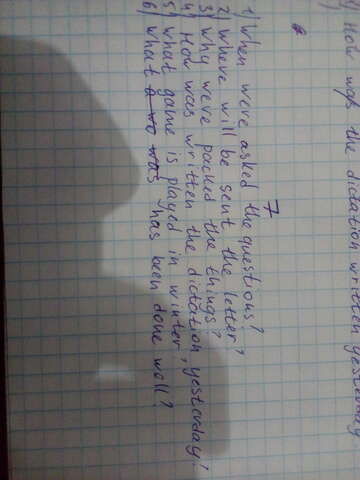 4) How was the dictation written, yesterday
7
1) When were asked the questions?
2) Where will be sent the letter?
3) Why were packed the things?
4) How was written the dictation, yesterday?
5) What game is played in winter?
6) What has been done well?